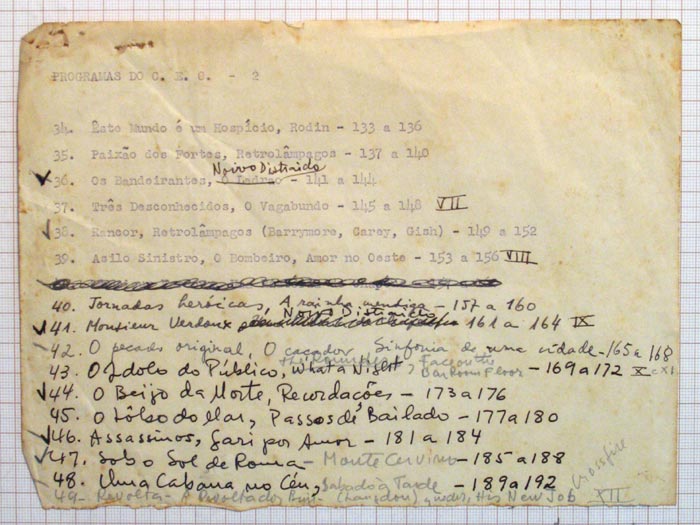 PROGRAMAS DO C. E. C. - 2
34. Êste Mundo é um Hospício, Rodin - 133 a 136
35. Paixão dos Fortes, Retrolâmpagos - 137 a 140
Noivo Distraido
36. Os Bandeirantes, O Ladrão - 141 a 144
37. Três Desconhecidos, O Vagabundo - 145 a 148 VII
38. Rancor, Retrolâmpagos (Barrymore, Carey, Gish) - 149 a 152
39. Asilo Sinistro, O Bombeiro, Amor no Oeste - 153 a 156 VIII
40. Jornadas heróicas, A rainha mendiga - 157 a 160
Noivo Distraido
41. Monsieur Verdoux 161 a 164 IX
42. O pecado original, O caçador Sinfonia de uma cidade - 165 a 168
43. O Idolo do Público, What a Night, Face on the BarRoom Floor - 169 a 172 X
44. O Beijo da Morte, Recordações - 173 a 176
45. O Lôbo do Mar, Passos de Bailado - 177 a 180
46. Assassinos, Gari por Amor - 181 a 184
47. Sob o Sol de Roma - Monte Cervino - 185 a 188
48. Uma Cabana no Céu, Sabado à Tarde - 189 a 192
Crossfire
49 - Revolta - (Langdon) His New Job XII